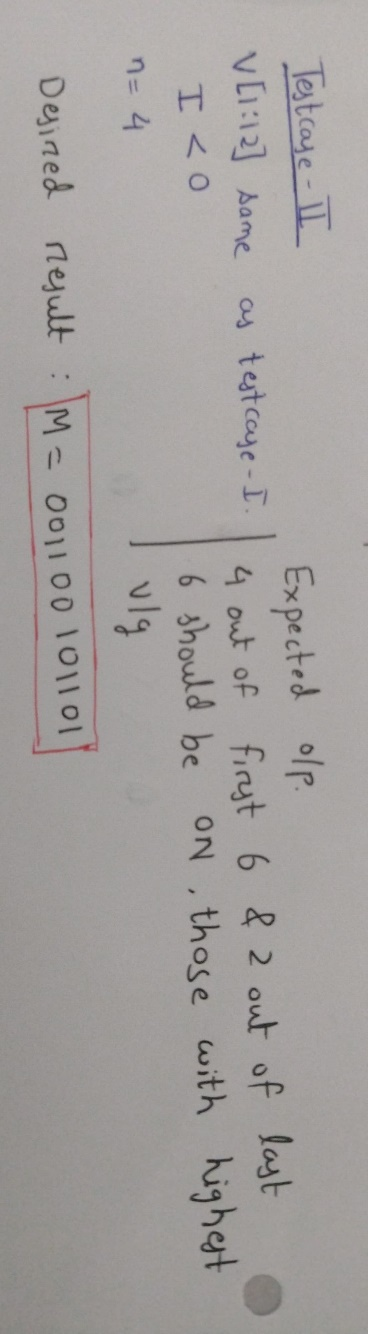 Testcase-II
V[1:12] same as testcase-I.
I < 0
n = 4
Expected o/p.
4 out of first 6 & 2 out of last
6 should be ON, those with highest
v/g
Desired result : M = 001100 101101